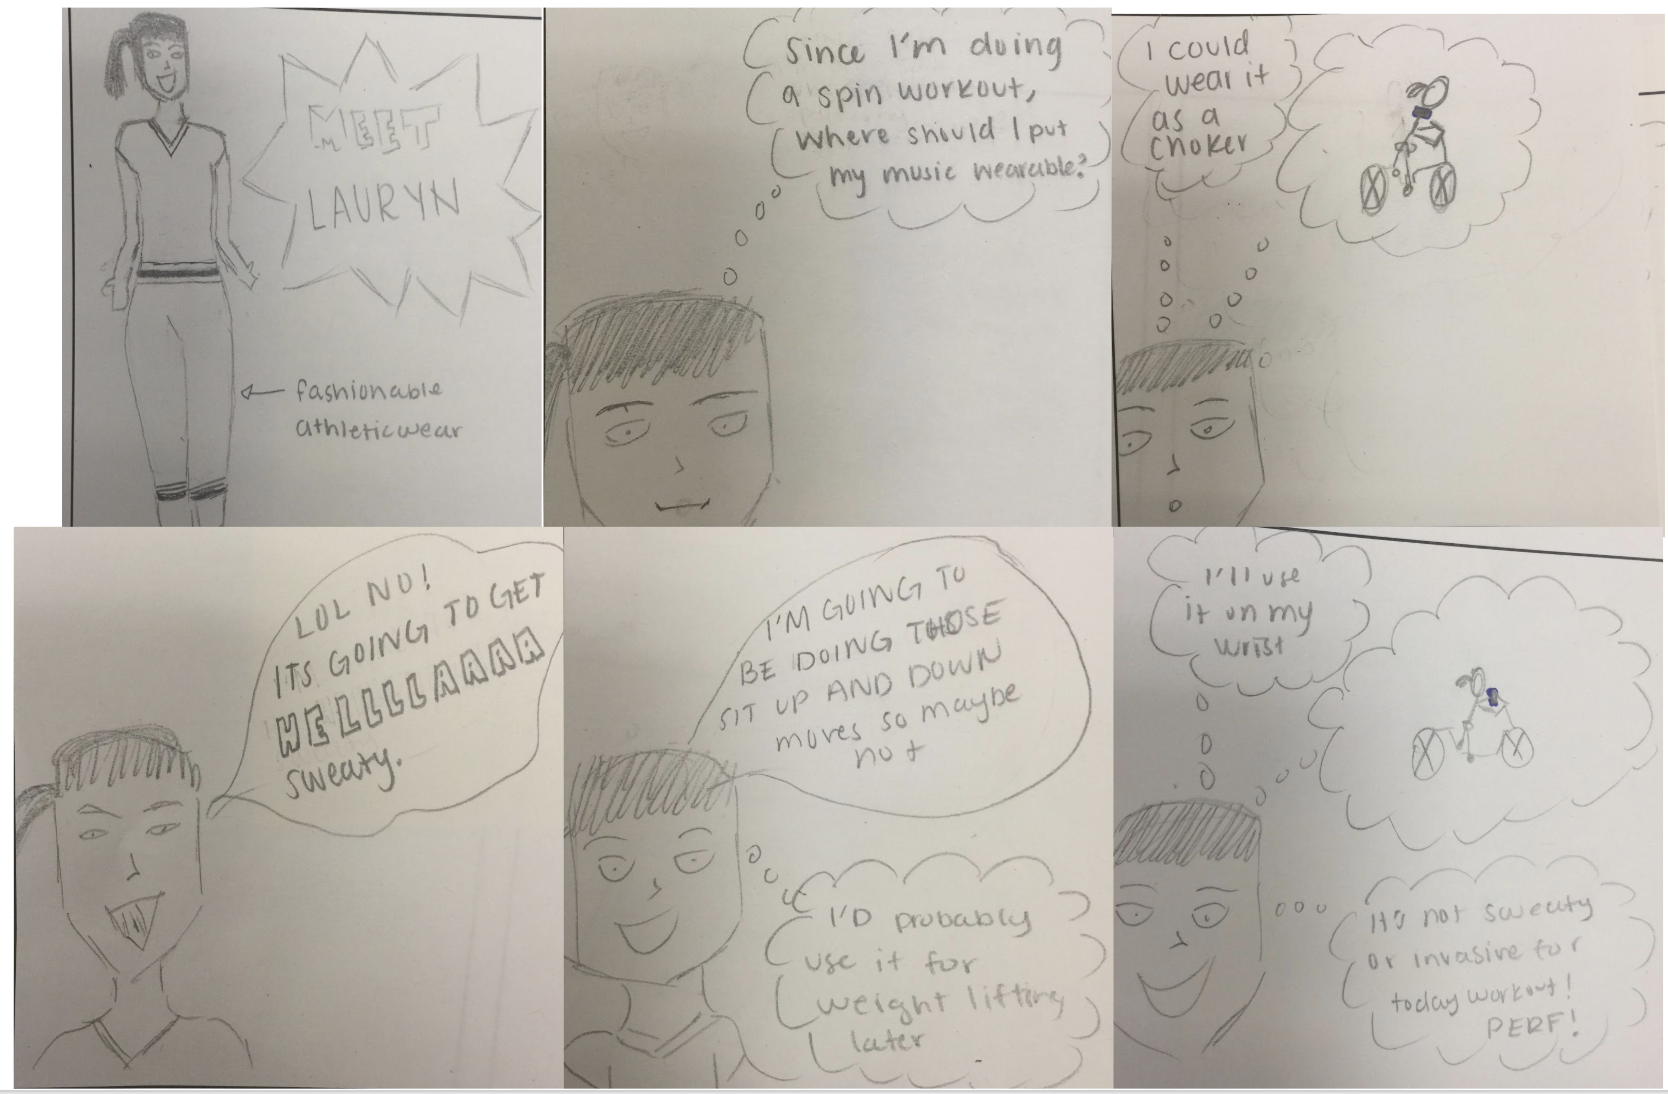 MEET
LAURYN
fashionable
athleticwear
Since I'm doing
a spin workout,
where should I put
my music wearable?
I could
wear it
as a
choker
LOL NO!
ITS GOING TO GET
HELLLLAAAA
sweaty.
I'M GOING TO
BE DOING THOSE
SIT UP AND DOWN
moves so maybe
not
I'D probably
use it for
weight lifting
later
I'll use
it on my
wrist
It's not sweaty
or invasive for
today workout!
PERF!